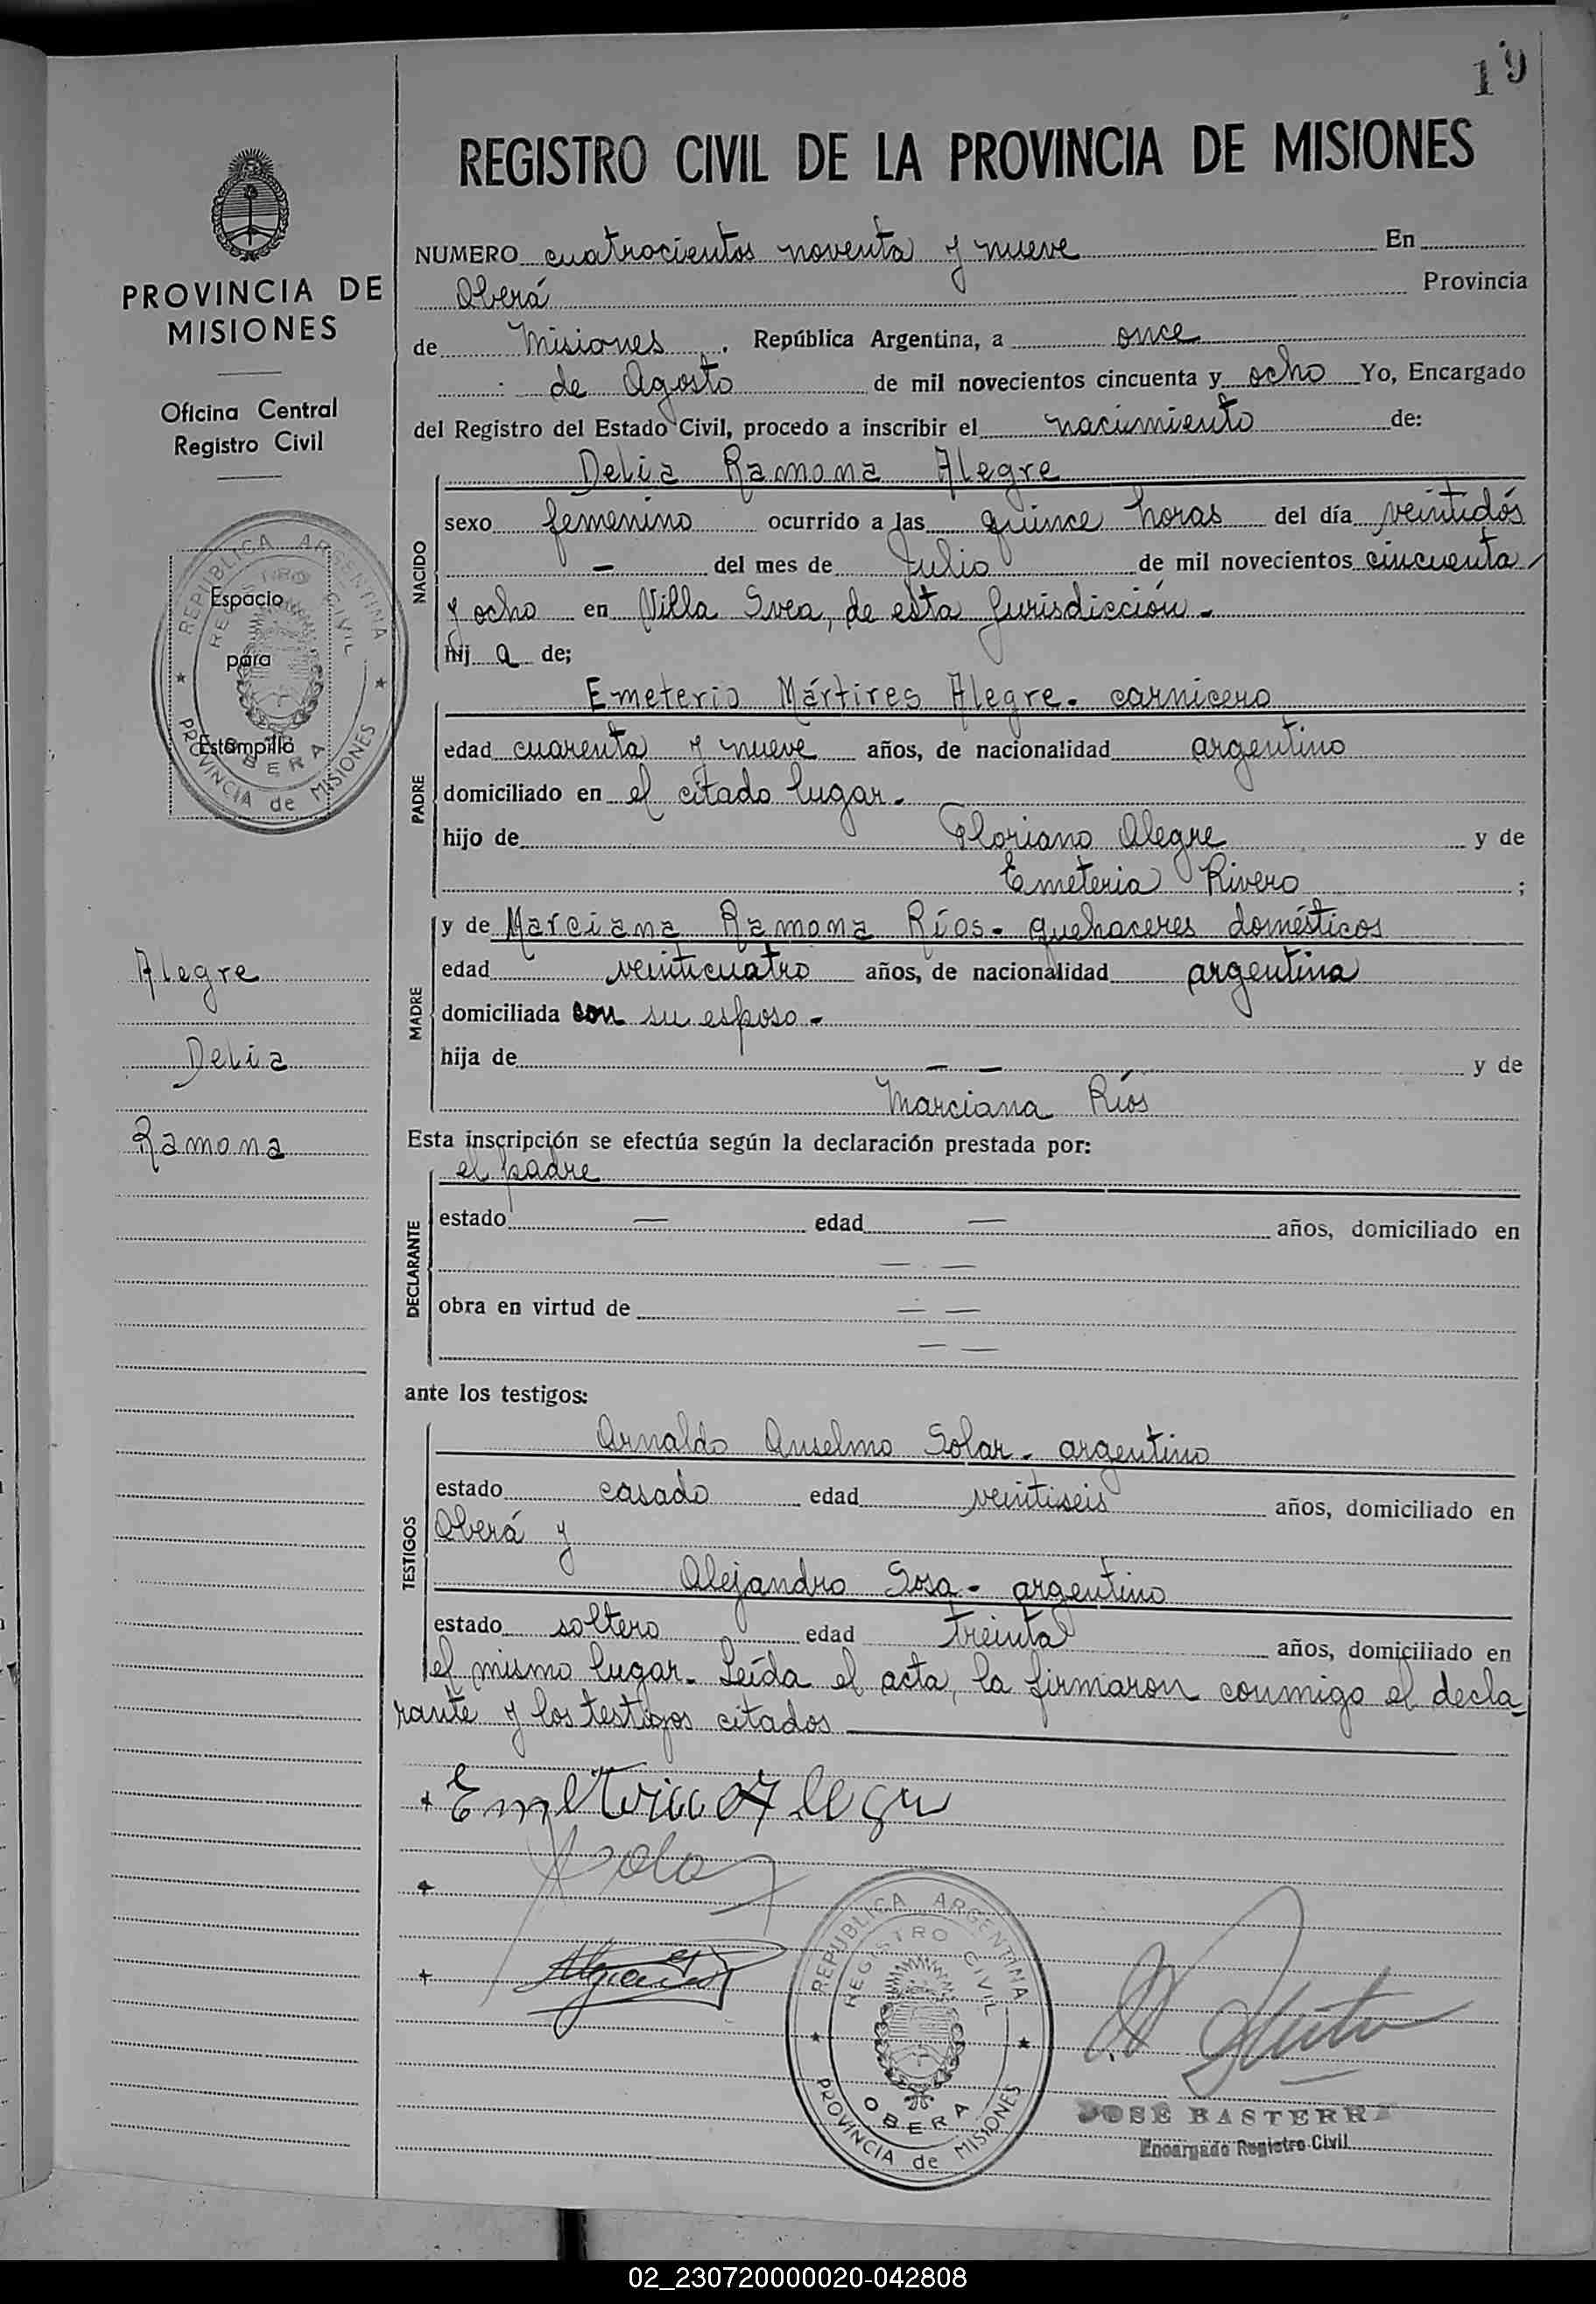 19
REGISTRO CIVIL DE LA PROVINCIA DE MISIONES
PROVINCIA DE
MISIONES
Oficina Central
Registro Civil
REPUBLICA ARGENTINA
REGISTRO CIVIL
OBERA
PROVINCIA de MISIONES
Espacio
para
Estampilla
Alegre
Delia
Ramona
NUMERO cuatrocientos noventa y nueve En
Oberá Provincia
de Misiones, República Argentina, a once
de Agosto de mil novecientos cincuenta y ocho Yo, Encargado
del Registro del Estado Civil, procedo a inscribir el nacimiento de:
Delia Ramona Alegre
NACIDO
sexo femenino ocurrido a las quince horas del día veintidós
— del mes de Julio de mil novecientos cincuenta
y ocho en Villa Svea, de esta Jurisdicción.-
hij a de;
Emeterio Mártires Alegre.- carnicero
PADRE
edad cuarenta y nueve años, de nacionalidad argentino
domiciliado en el citado lugar.-
hijo de Floriano Alegre y de
Emeteria Rivero ;
MADRE
y de Marciana Ramona Ríos.- quehaceres domésticos
edad veinticuatro años, de nacionalidad argentina
domiciliada con su esposo.-
hija de — — y de
Marciana Ríos
Esta inscripción se efectúa según la declaración prestada por:
el padre
DECLARANTE
estado — edad — años, domiciliado en
— —
obra en virtud de — —
— —
ante los testigos:
Arnaldo Anselmo Solar.- argentino
TESTIGOS
estado casado edad veintiseis años, domiciliado en
Oberá y
Alejandro Sosa.- argentino
estado soltero edad treinta años, domiciliado en
el mismo lugar.- Leída el acta, la firmaron conmigo el decla-
rante y los testigos citados
+ Emeterio Alegre
+ Solar
+
REPUBLICA ARGENTINA
REGISTRO CIVIL
OBERA
PROVINCIA de MISIONES
JOSE BASTERRA
Encargado Registro Civil
02_230720000020-042808